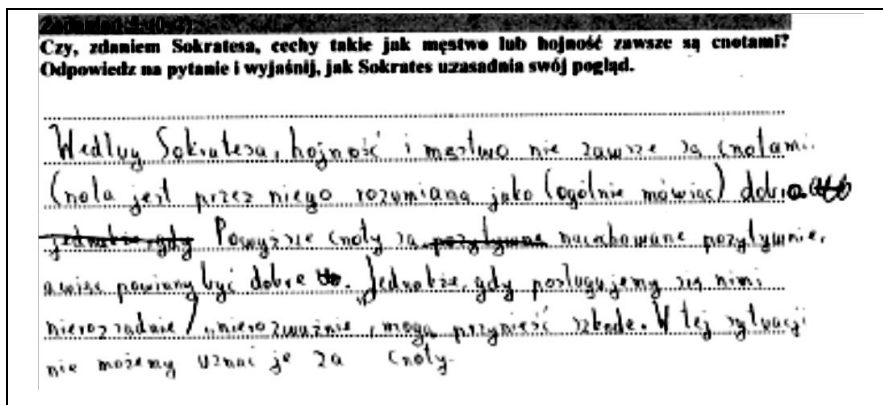 Czy, zdaniem Sokratesa, cechy takie jak męstwo lub hojność zawsze są cnotami?
Odpowiedz na pytanie i wyjaśnij, jak Sokrates uzasadnia swój pogląd.
Według Sokratesa, hojność i męstwo nie zawsze są cnotami.
Cnota jest przez niego rozumiana jako (ogólnie mówiąc) dobro
jednakże, gdy Powyższe cnoty są pozytywne nacechowane pozytywnie,
a więc powinny być dobre. Jednakże, gdy posługujemy się nimi
nierozsądnie / nierozważnie, mogą przynieść szkodę. W tej sytuacji
nie możemy uznać je za cnoty.